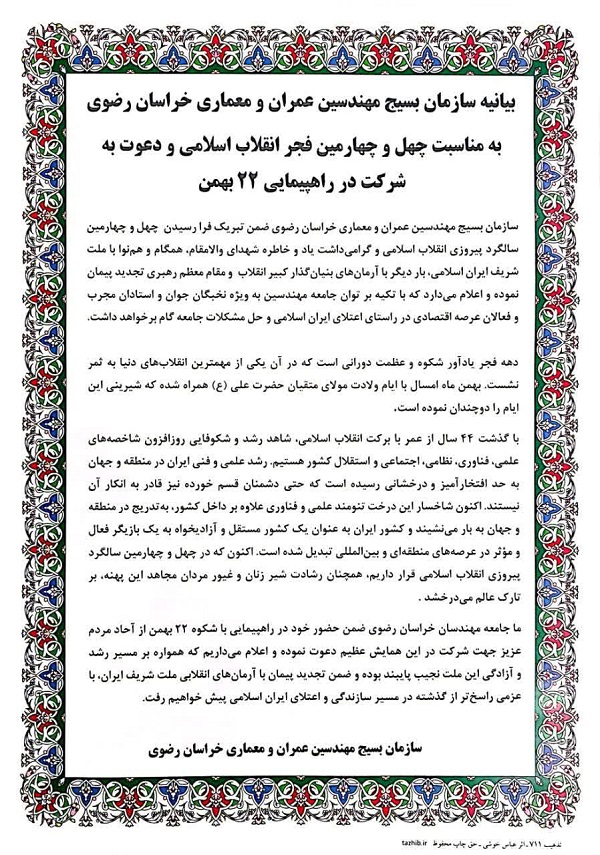 بیانیه سازمان بسیج مهندسین عمران و معماری خراسان رضوی
به مناسبت چهل و چهارمین فجر انقلاب اسلامی و دعوت به
شرکت در راهپیمایی ۲۲ بهمن
سازمان بسیج مهندسین عمران و معماری خراسان رضوی ضمن تبریک فرا رسیدن چهل و چهارمین
سالگرد پیروزی انقلاب اسلامی و گرامی‌داشت یاد و خاطره شهدای والامقام، همگام و هم‌نوا با ملت
شریف ایران اسلامی، بار دیگر با آرمان‌های بنیان‌گذار کبیر انقلاب و مقام معظم رهبری تجدید پیمان
نموده و اعلام می‌دارد که با تکیه بر توان جامعه مهندسین به ویژه نخبگان جوان و استادان مجرب
و فعالان عرصه اقتصادی در راستای اعتلای ایران اسلامی و حل مشکلات جامعه گام برخواهد داشت.
دهه فجر یادآور شکوه و عظمت دورانی است که در آن یکی از مهمترین انقلاب‌های دنیا به ثمر
نشست. بهمن ماه امسال با ایام ولادت مولای متقیان حضرت علی (ع) همراه شده که شیرینی این
ایام را دوچندان نموده است.
با گذشت ۴۴ سال از عمر با برکت انقلاب اسلامی، شاهد رشد و شکوفایی روزافزون شاخصه‌های
علمی، فناوری، نظامی، اجتماعی و استقلال کشور هستیم. رشد علمی و فنی ایران در منطقه و جهان
به حد افتخارآمیز و درخشانی رسیده است که حتی دشمنان قسم خورده نیز قادر به انکار آن
نیستند. اکنون شاخسار این درخت تنومند علمی و فناوری علاوه بر داخل کشور، به‌تدریج در منطقه
و جهان به بار می‌نشیند و کشور ایران به عنوان یک کشور مستقل و آزادیخواه به یک بازیگر فعال
و مؤثر در عرصه‌های منطقه‌ای و بین‌المللی تبدیل شده است. اکنون که در چهل و چهارمین سالگرد
پیروزی انقلاب اسلامی قرار داریم، همچنان رشادت شیر زنان و غیور مردان مجاهد این پهنه، بر
تارک عالم می‌درخشد .
ما جامعه مهندسان خراسان رضوی ضمن حضور خود در راهپیمایی با شکوه ۲۲ بهمن از آحاد مردم
عزیز جهت شرکت در این همایش عظیم دعوت نموده و اعلام می‌داریم که همواره بر مسیر رشد
و آزادگی این ملت نجیب پایبند بوده و ضمن تجدید پیمان با آرمان‌های انقلابی ملت شریف ایران، با
عزمی راسخ‌تر از گذشته در مسیر سازندگی و اعتلای ایران اسلامی پیش خواهیم رفت.
سازمان بسیج مهندسین عمران و معماری خراسان رضوی
تذهیب ۷۱۱ ـ اثر عباس خوشی ـ حق چاپ محفوظ tazhib.ir